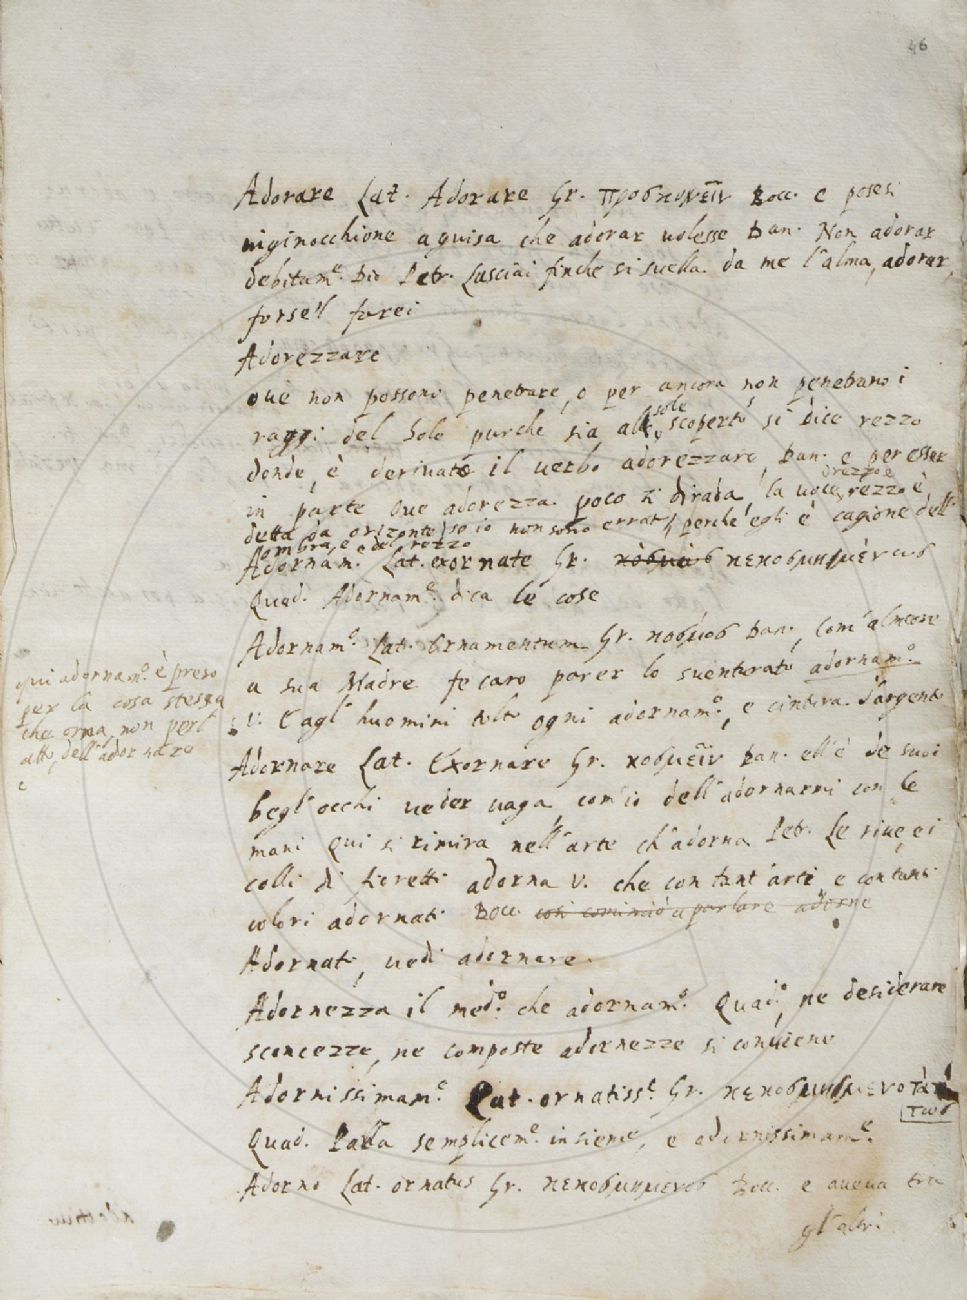 46
Adorare Lat. Adorare Gr. προσκυνεῖν Bocc. e posesi
inginocchione a guisa che adorar volesse Dan. Non adorar
debitam.e Dio Petr. Lasciai finche si suella da me l'alma, adorar,
forse'l farei
Adorezzare
oue non possono penetrare, o per ancora non penetrano i
raggi del Sole purche sia allo scoperto si dice rezzo
sole
donde, è deriuato il uerbo adorezzare, Dan. e per esser
in parte oue adorezza poco si dirada, la uoce, rezzo è
orezzo e
detta da orizonte, se io non sono errato, perche egli è cagione dell'
ombra, e del rezzo
Adornam. Lat. exornate Gr. κεκοσμημένως
Quad. Adornam.e dica le cose
Adornam.o Lat. Ornamentum Gr. κόσμος Dan., Com'almeone
a sua Madre fe caro parer lo suenturato adornam.o
qui adornam.o è preso
per la cosa stessa
che orna, non perl'
atto, dell'adornare
e
V. E agl'huomini tolto ogni adornam.o, e cintura d'argento
Adornare Lat. Exornare Gr. κοσμεῖν Dan. ell'è de suoi
begl'occhi ueder uaga com'io dell'adornarmi con le
mani Qui si rimira nell'arte ch'adorna Petr. Le riue, ei
colli di fioretti adorna V. che con tant'arte, e con tanti
colori adornati Bocc. così cominciò a parlare adorne
Adornato, uedi adornare.
Adornezza il med.o che adornam.o Quad., ne desiderare
sconcezze, ne composte adornezze si conuiene
Adornissimam.e Lat. ornatiss.e Gr. κεκοσμημενοτά
τως
Quad. Parla semplicem.e insieme, e adornissimam.e
Adorno Lat. ornatus Gr. κεκοσμημενος Bocc. e aueua tra
gl'altri